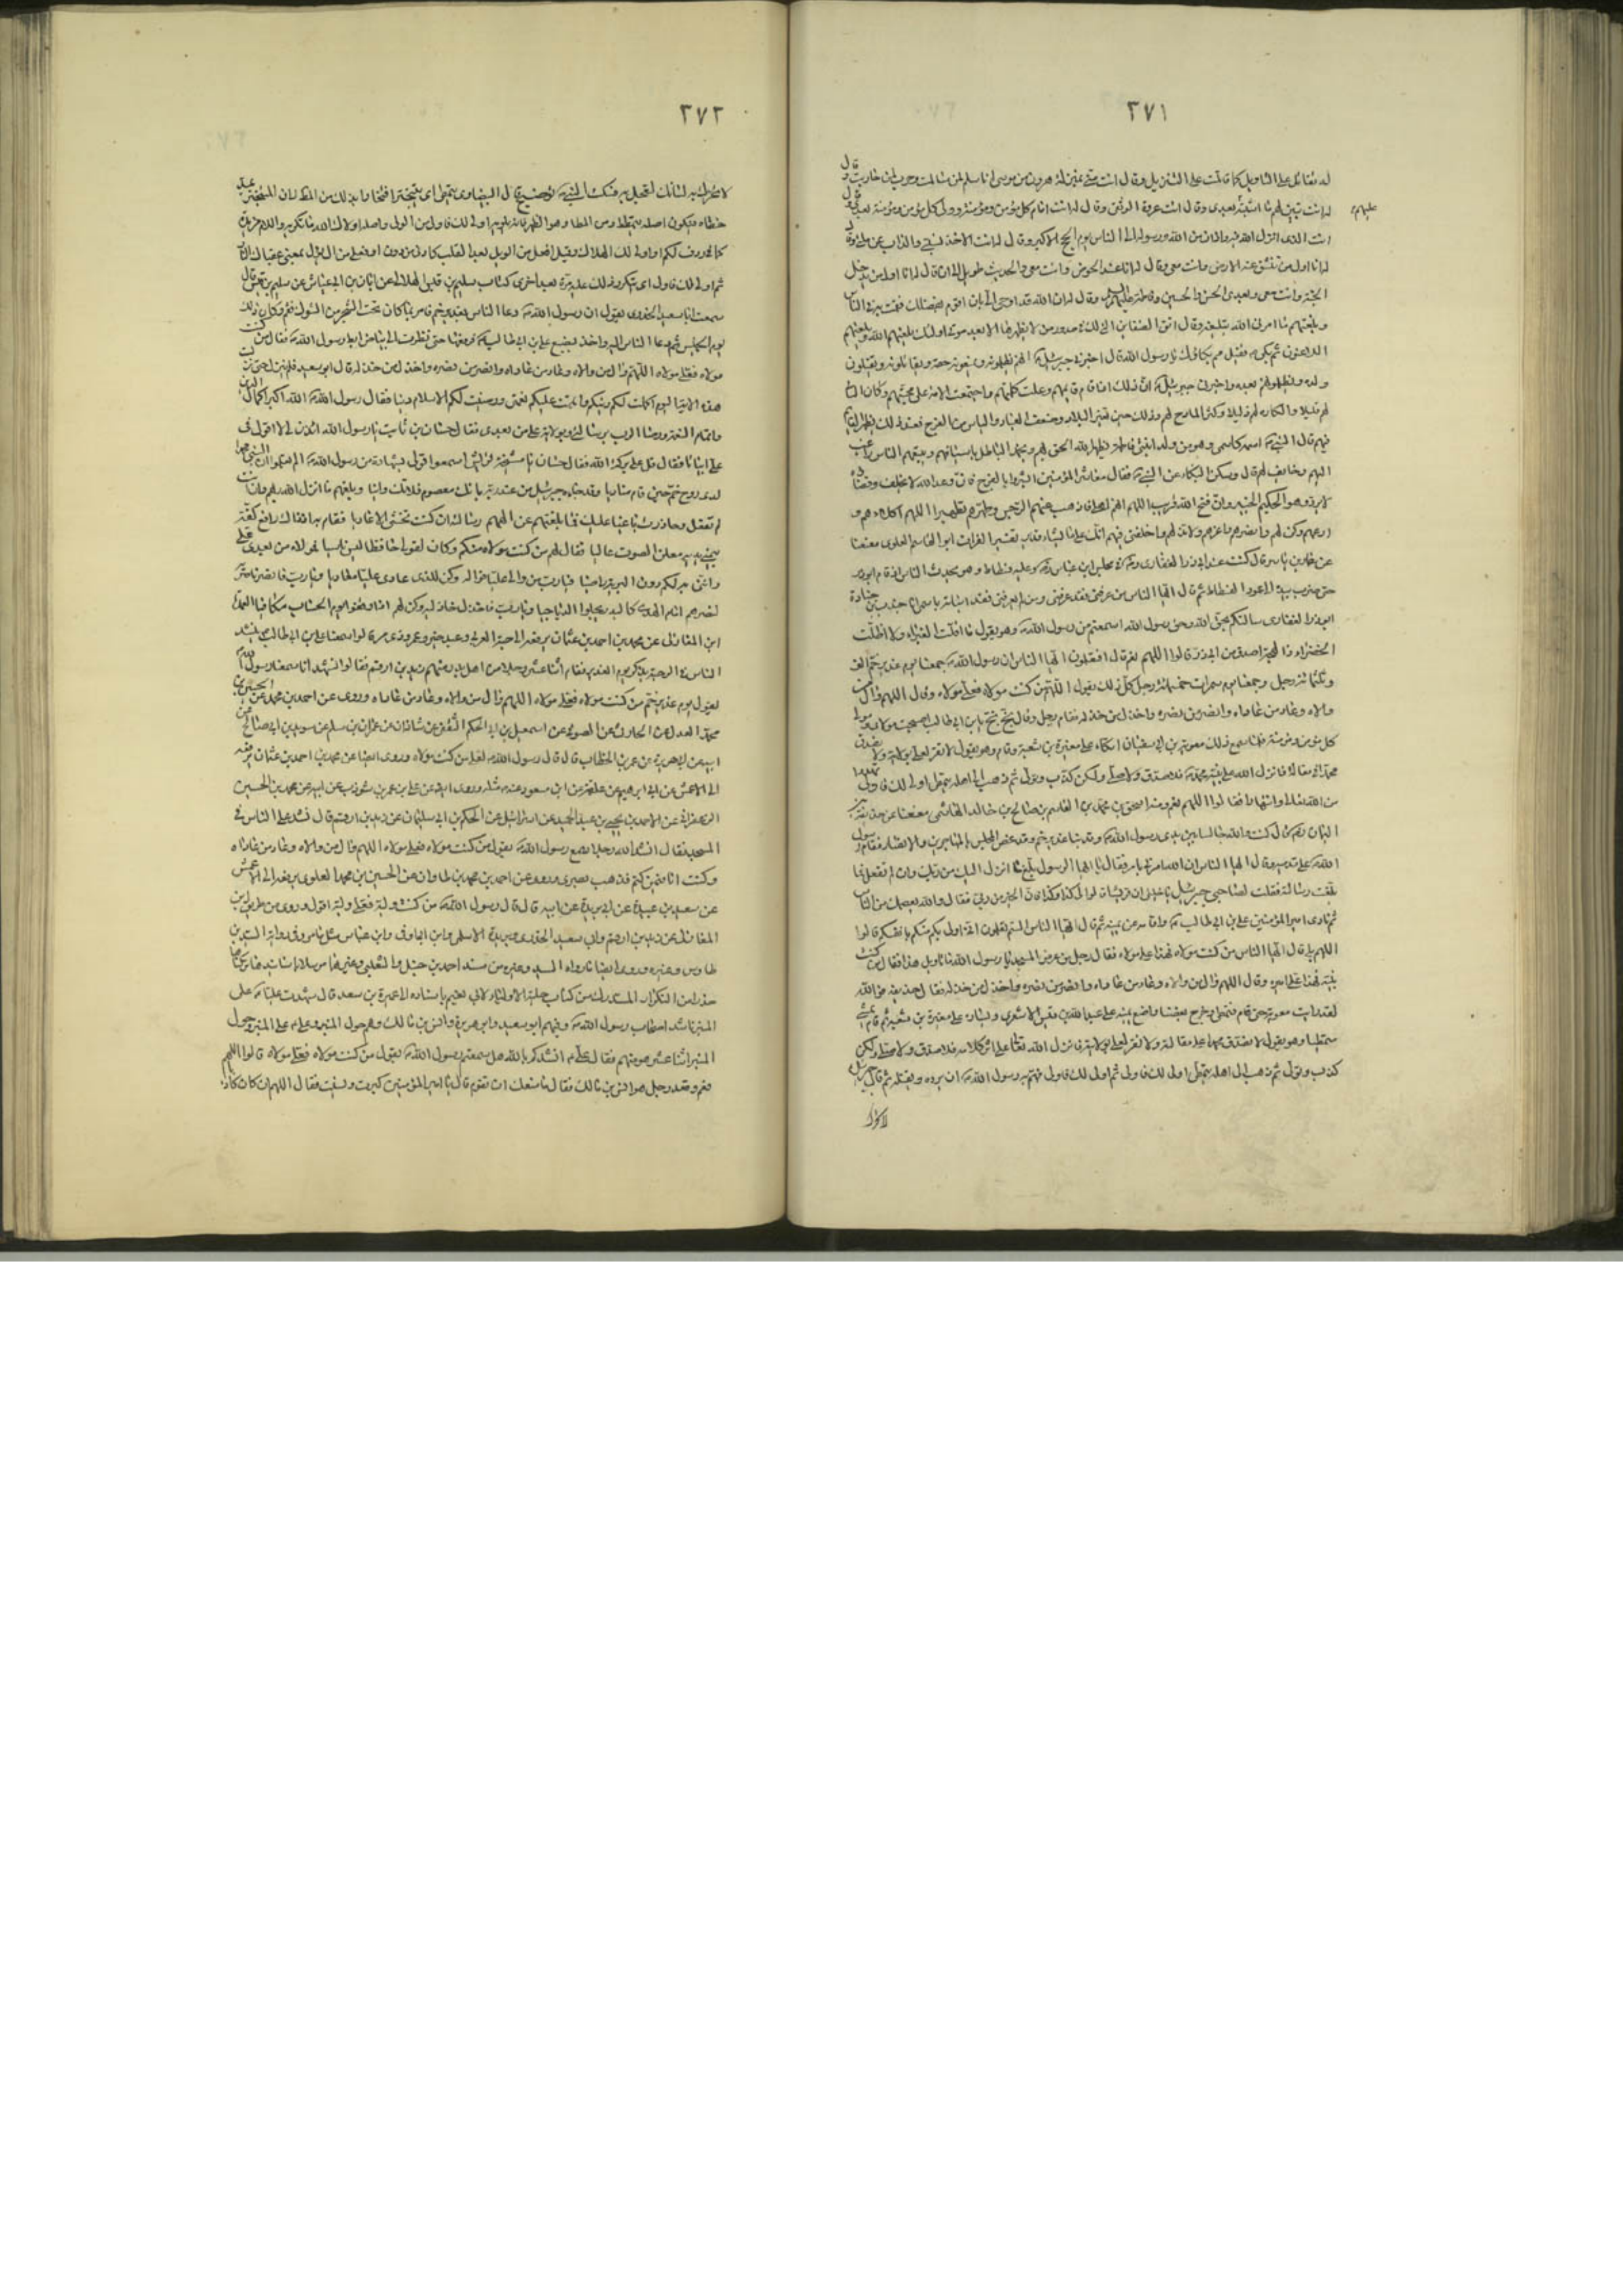 ٢٧١
له تقاتل على التاويل كما قاتلت على التنزيل وقال انت مني بمنزلة هرون من موسى انا سلم لمن سالمت وحرب لمن حاربت وقال
له انت تبين لهم ما اشتبه بعدى وقال انت عروة الوثقى وقال له انت امام كل مؤمن ومؤمنة وولى كل مؤمن ومؤمنة بعدى وقال
عليهم
انت الذى انزل الله فيه واذان من الله ورسوله الى الناس يوم الحج الاكبر وقال له انت الاخذ بسنتى والذاب عن ملتى وقال
له انا اول من تنشق عنه الارض وانت معى وقال له انا عند الحوض وانت معى والحديث طويل الى ان قال له انا اول من يدخل
الجنة وانت معى وبعدى الحسن والحسين وفاطمة عليهم السلام وقال له ان الله قد اوحى الى بان اقوم بفضلك فقمت به فى الناس
وبلغتهم ما امرنى الله بتبليغه وقال اتق الضغاين التى لك فى صدور من لا يظهرها الا بعد موتى اولئك يلعنهم الله ويلعنهم
اللاعنون ثم بكى فقيل مم بكاؤك يا رسول الله قال اخبرنى جبرئيل انهم يظلمونه ويمنعونه حقه ويقاتلونه ويقتلون
ولده ويظلمونهم بعده واخبرنى جبرئيل ان ذلك اذا قام قايمهم وعلت كلمتهم واجتمعت الامة على محبتهم وكان الشانى
لهم قليلا والكاره لهم ذليلا وكثر المادح لهم وذلك حين تغير البلاد وضعف العباد والياس من الفرج فعند ذلك يظهر القايم
فيهم قال النبى اسمه كاسمى وهو من ولد ابنتى فاطمة يظهر الله الحق بهم ويخمد الباطل باسيافهم ويتبعهم الناس راغب
اليهم وخايف لهم قال وسكن البكاء عن النبى فقال معاشر المؤمنين ابشروا بالفرج فان وعد الله لا يخلف وقضاؤه
لا يرد وهو الحكيم الخبير وان فتح الله قريب اللهم انهم اهلى فاذهب عنهم الرجس وطهرهم تطهيرا اللهم اكلأهم و
ارعهم وكن لهم وانصرهم واعزهم ولا تذلهم واخلفنى فيهم انك على ما تشاء قدير تفسير الفرات ابو القاسم العلوى معنعنا
عن عمار بن ياسر قال كنت عند ابى ذر الغفارى فى مجلس ابن عباس وعليه فسطاط وهو يحدث الناس اذ قام ابو ذر
حتى ضرب بيده الى عمود الفسطاط ثم قال ايها الناس من عرفنى فقد عرفنى ومن لم يعرفنى فقد انباته باسمى انا جندب بن جنادة
ابو ذر الغفارى سالتكم بحق الله وحق رسول الله اسمعتم من رسول الله وهو يقول ما اقلت الغبراء ولا اظلت
الخضراء ذا لهجة اصدق من ابى ذر قالوا اللهم نعم قال افتعلمون ايها الناس ان رسول الله جمعنا يوم غدير خم الف
وثلثمائة رجل وجمعنا يوم سمرات خمسمائة رجل كل ذلك يقول اللهم من كنت مولاه فعلى مولاه وقال اللهم وال من
والاه وعاد من عاداه وانصر من نصره واخذل من خذله فقام رجل وقال بخ بخ يا بن ابى طالب اصبحت مولاى ومولى
كل مؤمن ومؤمنة فلما سمع ذلك معوية بن ابى سفيان اتكاء على مغيرة بن شعبة وقام وهو يقول لا نقر لعلى بولاية ولا نصدق
محمدا فى مقالة فانزل الله على نبيه محمد فلا صدق ولا صلى ولكن كذب وتولى ثم ذهب الى اهله يتمطى اولى لك فاولى تهددا
من الله تعالى وانتهارا فقالوا اللهم نعم ومنه اسحق بن محمد بن القاسم بن صالح بن خالد الهاشمى معنعنا عن حذيفة بن
اليمان قال كنت والله جالسا بين يدى رسول الله وقد نزل بنا غدير خم وقد غص المجلس بالمهاجرين والانصار فقام رسول
الله على قدميه وقال ايها الناس ان الله امرنى بامر فقال يا ايها الرسول بلغ ما انزل اليك من ربك وان لم تفعل فما
بلغت رسالته فقلت لصاحبى جبرئيل يا خليلى ان قريشا قالوا لى كذا وكذا فاتى الخبر من ربى فقال والله يعصمك من الناس
ثم نادى امير المؤمنين على بن ابى طالب واقامه عن يمينه ثم قال ايها الناس الستم تعلمون انى اولى بكم منكم بانفسكم قالوا
اللهم بلى قال ايها الناس من كنت مولاه فهذا على مولاه فقال رجل من عرض المسجد يا رسول الله ما تاويل هذا فقال من كنت
نبيه فهذا على اميره وقال اللهم وال من والاه وعاد من عاداه وانصر من نصره واخذل من خذله فقال حذيفة فوالله
لقد رايت معوية حتى قام فتمطى وخرج مغضبا واضع يمينه على عبد الله بن قيس الاشعرى ويساره على مغيرة بن شعبة ثم قام يمشى
متمطيا وهو يقول لا نصدق محمدا على مقالته ولا نقر لعلى بولايته فانزل الله تعالى على اثر كلامه فلا صدق ولا صلى ولكن
كذب وتولى ثم ذهب الى اهله يتمطى اولى لك فاولى ثم اولى لك فاولى فهم به رسول الله ان يرده ويقتله ثم قال جبرئيل
لا تحرك
٢٧٢
لا تحرك به لسانك لتعجل به فسكت النبى توضيح قال البيضاوى يتمطى اى يتبختر افتخارا بذلك من المط فان المتبختر يمد
خطاه فيكون اصله يتمطط او من المطا وهو الظهر فانه يلويه اولى لك فاولى من الولى واصله اولاك الله ما تكرهه واللام مزيدة
كما فى ردف لكم او اولى لك الهلاك وقيل افعل من الويل بعد القلب كادنى من دون او فعلى من آل يؤل بمعنى عقباك النار
ثم اولى لك فاولى اى يتكرر ذلك عليه مرة بعد اخرى كتاب سليم بن قيس الهلالى عن ابان بن ابى عياش عن سليم بن قيس قال
سمعت ابا سعيد الخدرى يقول ان رسول الله دعا الناس بغدير خم فامر بما كان تحت الشجر من الشوك فقم وكان ذلك
يوم الخميس ثم دعا الناس اليه واخذ بضبع على بن ابى طالب فرفعها حتى نظرت الى بياض ابط رسول الله فقال من كنت
مولاه فعلى مولاه اللهم وال من والاه وعاد من عاداه وانصر من نصره واخذل من خذله قال ابو سعيد فلم ينزل حتى نزلت
هذه الاية اليوم اكملت لكم دينكم واتممت عليكم نعمتى ورضيت لكم الاسلام دينا فقال رسول الله الله اكبر على اكمال الدين
واتمام النعمة ورضا الرب برسالتى وبولاية على من بعدى فقال حسان بن ثابت يا رسول الله ائذن لى لاقول فى
على ابياتا فقال قل على بركة الله فقال حسان يا مشيخة قريش اسمعوا قولى بشهادة من رسول الله الم تعلموا ان النبى محمدا
لدى دوح خم حين قام مناديا وقد جاءه جبرئيل من عند ربه بانك معصوم فلا تك وانيا وبلغهم ما انزل الله ربهم وان انت
لم تفعل وحاذرت باغيا عليك فما بلغتهم عن الههم رسالته ان كنت تخشى الاعاديا فقام به اذ ذاك رافع كفه
بيمنى يديه معلن الصوت عاليا فقال لهم من كنت مولاه منكم وكان لقولى حافظا ليس ناسيا فمولاه من بعدى على
وانى به لكم دون البرية راضيا فيا رب من والى عليا فواله وكن للذى عادى عليا معاديا ويا رب فانصر ناصريه
لنصرهم امام الهدى كالبدر يجلوا الدياجيا ويا رب فاخذل خاذليه وكن لهم اذا وقفوا يوم الحساب مكافيا العمدة
ابن المغازلى عن محمد بن احمد بن عثمان يرفعه الى حبة العرنى وعبد خير وعمرو ذى مر قالوا سمعنا على بن ابى طالب ينشد
الناس فى الرحبة يذكر يوم الغدير فقام اثنا عشر رجلا من اهل بدر منهم زيد بن ارقم فقالوا نشهد انا سمعنا رسول الله
يقول يوم غدير خم من كنت مولاه فعلى مولاه اللهم وال من والاه وعاد من عاداه وروى عن احمد بن محمد عن الحسين بن
محمد العدل عن الحارث عن الصوفى عن اسمعيل بن ابى الحكم الثقفى عن شاذان عن عمران بن مسلم عن سويد بن ابى صالح عن
ابيه عن ابى هريرة عن عمر بن الخطاب قال قال رسول الله لعلى من كنت مولاه وروى ايضا عن محمد بن احمد بن عثمان يرفعه
الى الاعمش عن ابراهيم عن علقمة عن ابن مسعود عنه مثله وروى ايضا عن على بن عمر بن شوذب عن ابيه عن محمد بن الحسين
الزعفرانى عن احمد بن يحيى بن عبد الحميد عن اسرائيل عن الحكم بن ابى سليمان عن زيد بن ارقم قال نشد على الناس فى
المسجد فقال انشد الله رجلا سمع رسول الله يقول من كنت مولاه فعلى مولاه اللهم وال من والاه وعاد من عاداه
وكنت انا فيمن كتم فذهب بصرى وروى عن احمد بن محمد بن طاوان عن الحسين بن محمد العلوى يرفعه الى الاعمش
عن سعد بن عبيدة عن ابن بريدة عن ابيه قال قال رسول الله من كنت وليه فعلى وليه اقول وروى من طريق ابن
المغازلى عن زيد بن ارقم وابى سعيد الخدرى وبريدة الاسلمى وابن ابى اوفى وابن عباس مثل ما مر وفى رواية السيد بن
طاوس وغيره وروى ايضا ما رواه السيد وغيره من مسند احمد بن حنبل والثعلبى وغيرهما مرسلا واسانيد فتركناها
حذرا من التكرار المستدرك من كتاب حلية الاولياء لابى نعيم باسناده الى عميرة بن سعد قال شهدت عليا على
المنبر ناشد اصحاب رسول الله وفيهم ابو سعيد وابو هريرة وانس بن مالك وهم حول المنبر وعلى على المنبر وحول
المنبر اثنا عشر هو منهم فقال على انشدكم بالله هل سمعتم رسول الله يقول من كنت مولاه فعلى مولاه قالوا اللهم
نعم وقعد رجل هو انس بن مالك فقال ما منعك ان تقوم قال يا امير المؤمنين كبرت ونسيت فقال اللهم ان كان كاذبا